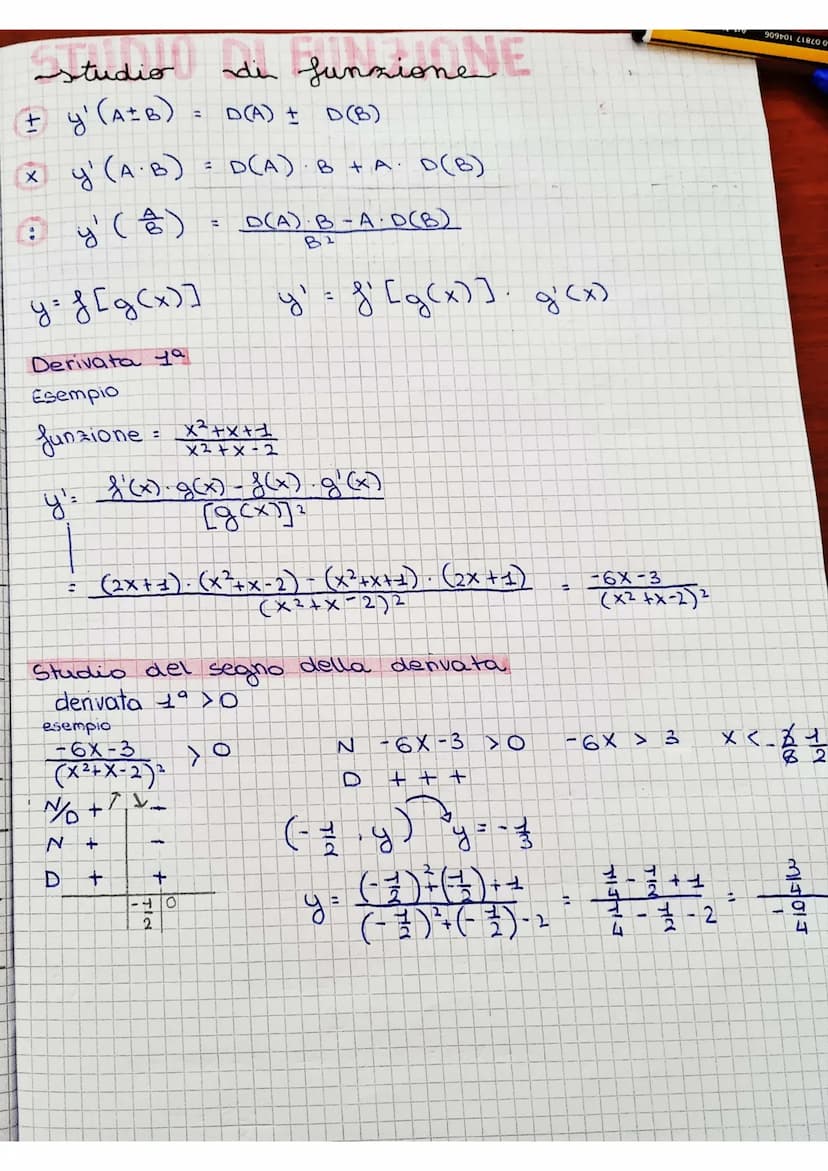 STUDIO DI FUNZIONE
studio di funzione
± y'(A±B) = D(A) ± D(B)
x y'(A·B) = D(A)·B + A· D(B)
: y'(A/B) = D(A)·B - A·D(B) / B²
y = f[g(x)] y' = f'[g(x)]· g'(x)
Derivata 1ª
Esempio
funzione = x²+x+1 / x²+x-2
y' = f'(x)·g(x) - f(x)·g'(x) / [g(x)]²
= (2x+1)·(x²+x-2) - (x²+x+1)·(2x+1) / (x²+x-2)² = -6x-3 / (x²+x-2)²
Studio del segno della derivata
derivata 1ª >0
esempio
-6x-3 / (x²+x-2)² > 0 N -6x-3 >0 -6x > 3 x < - 3/6 1/2
D + + +
N/D + ↑ ↓ -
N + -
D + +
-1/2 0
(-1/2, y) y = -1/3
y = (-1/2)²+(-1/2)+1 / (-1/2)²+(-1/2)-2 = 1/4 - 1/2 + 1 / 1/4 - 1/2 - 2 = 3/4 / -9/4